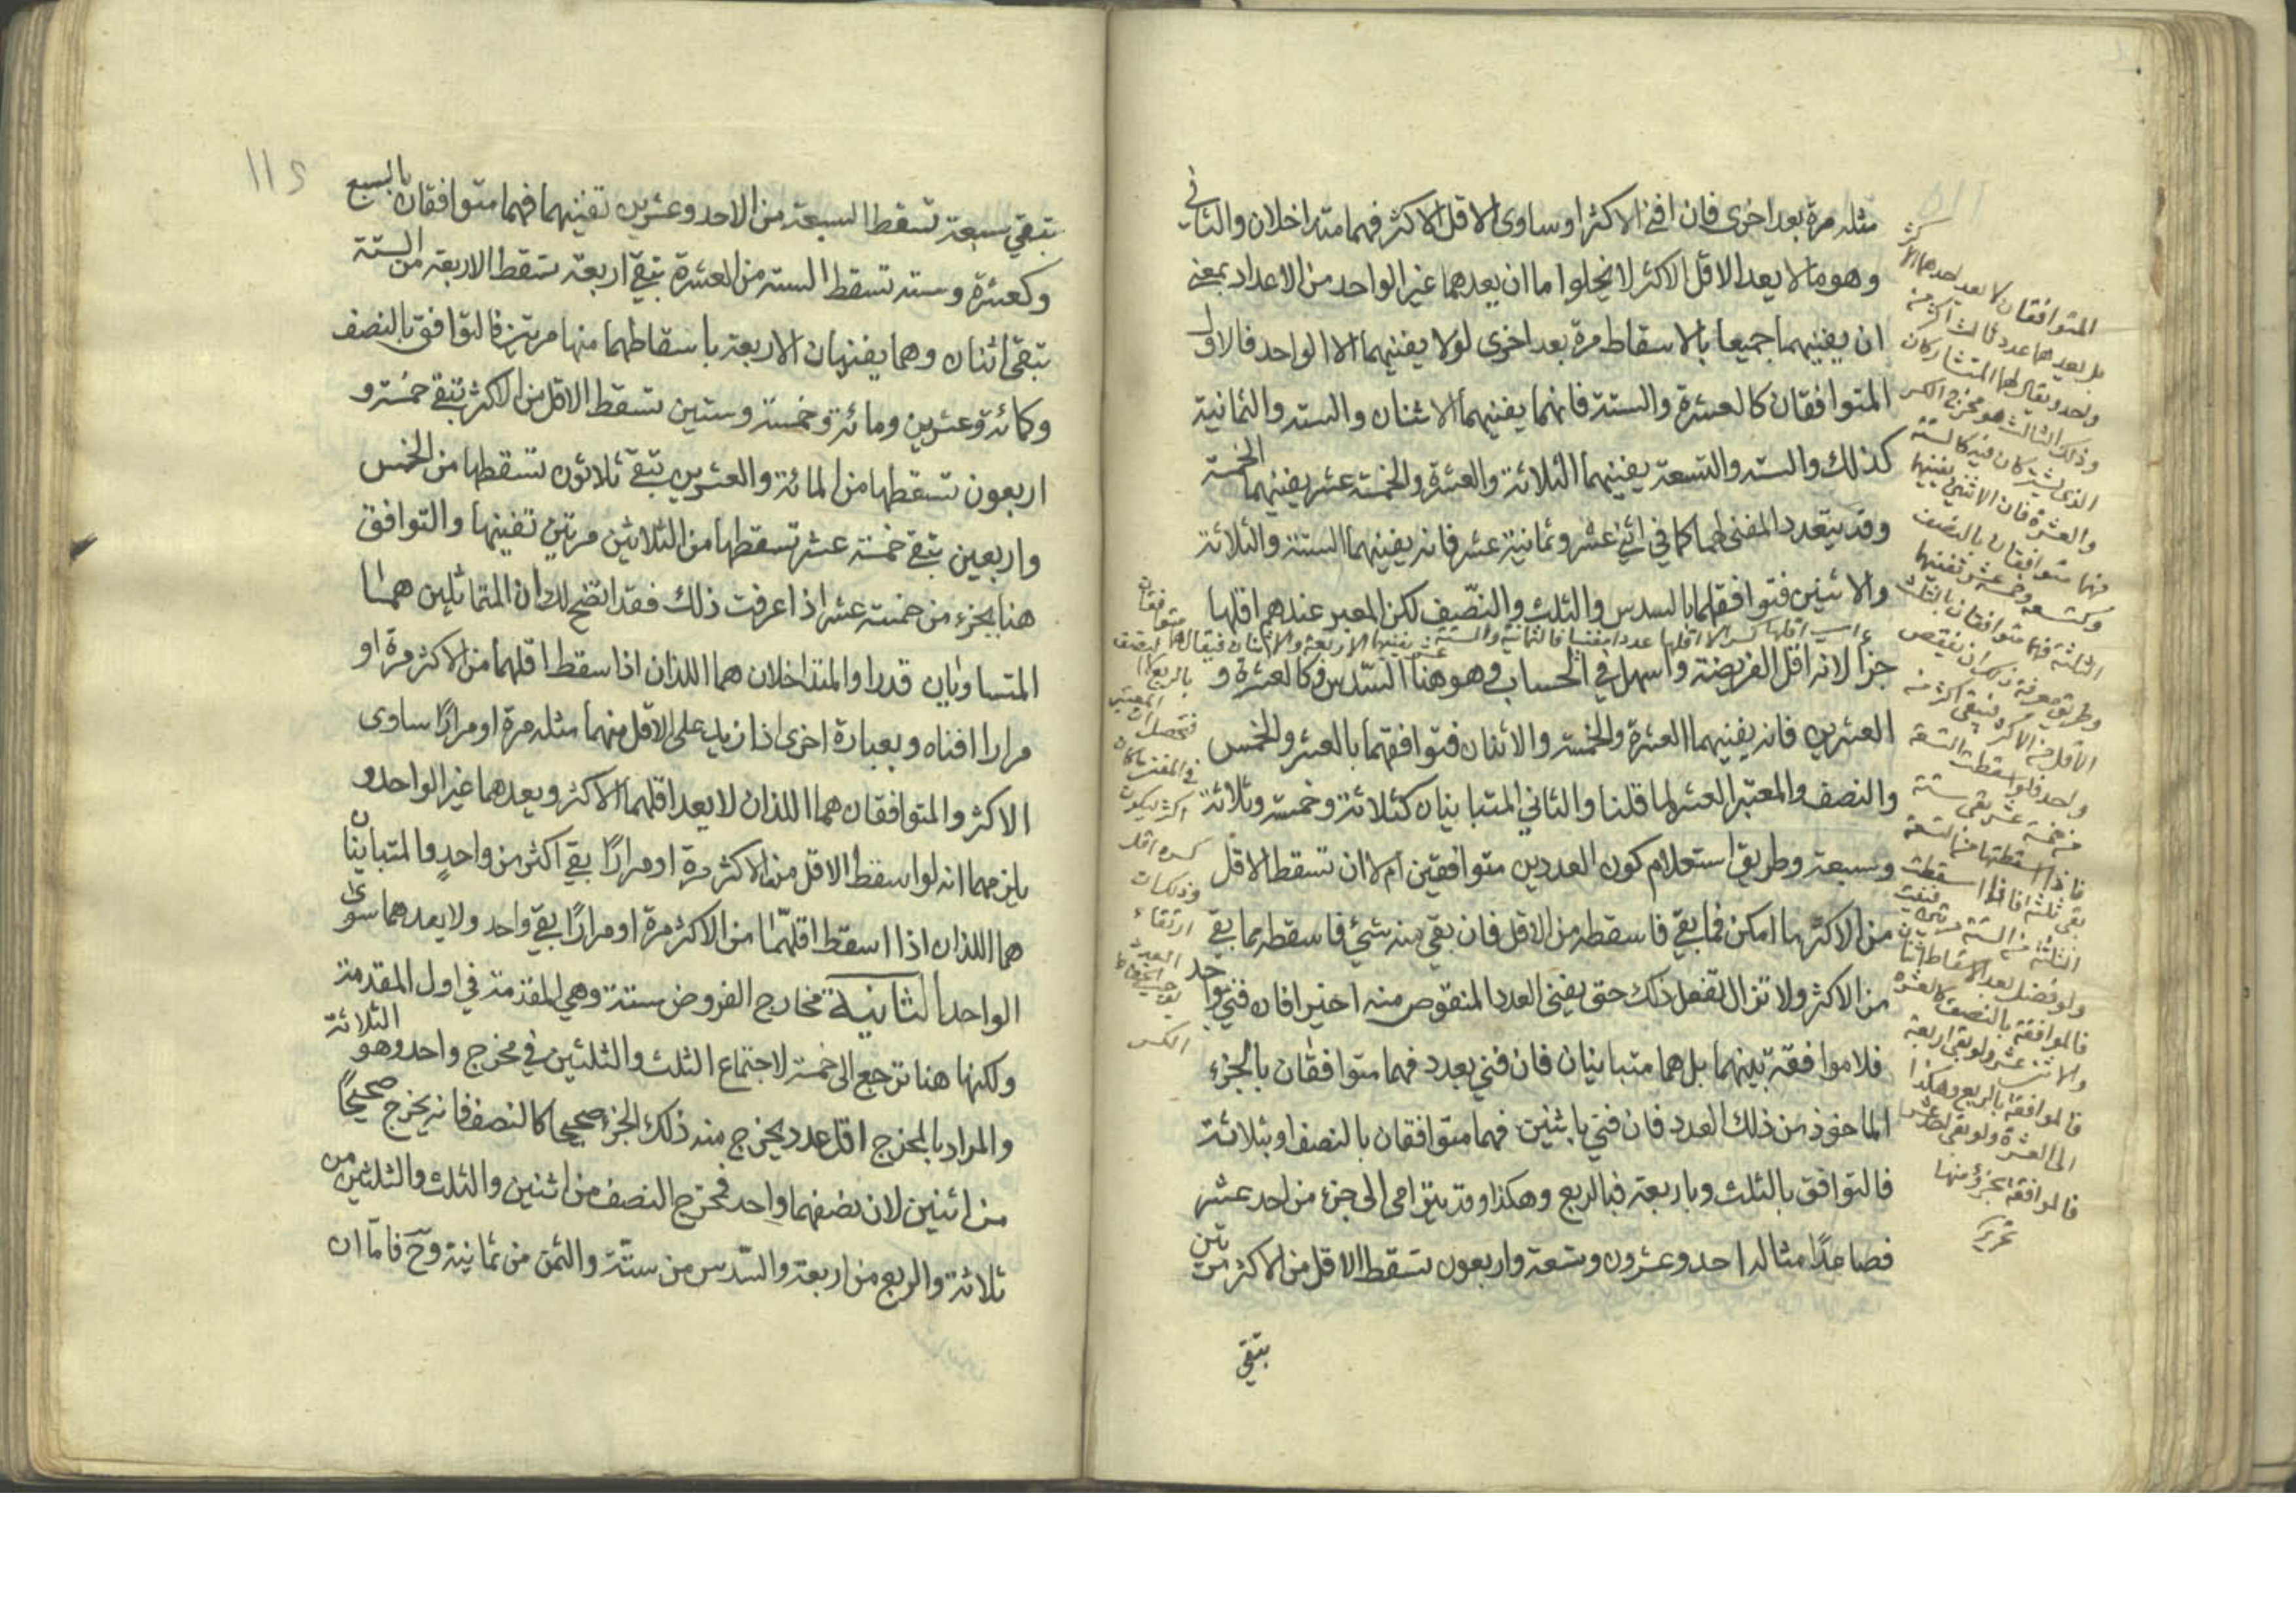 مثله مرة بعد اخرى فان افنى الاكثر او ساوى الاقل الاكثر فهما متداخلان والثاني
وهو ما لا يعد الاقل الاكثر لا يخلوا ما ان يعدهما غير الواحد من الاعداد بمعنى
ان يفنيهما جميعا بالاسقاط مرة بعد اخرى اولا يفنيهما الا الواحد فالاول
المتوافقان كالعشرة والستة فانهما يفنيهما الاثنان والستة والثمانية
كذلك والستة والتسعة يفنيهما الثلاثة والعشرة والخمسة عشر يفنيهما الخمسة
وقد يتعدد المفنى لهما كما في اثني عشر وثمانية عشر فانه يفنيهما الستة والثلاثة
والاثنين فتوافقهما بالسدس والثلث والنصف لكن المعبر عندهم اقلها
جزا لانه اقل الفريضة واسهل في الحساب وهو هنا السدس وكالعشرة و
العشرين فانه يفنيهما العشرة والخمسة والاثنان فتوافقهما بالعشر والخمس
والنصف والمعتبر العشر لما قلنا والثاني المتباينان كثلاثة وخمسة وثلاثة
وسبعة وطريق استعلام كون العددين متوافقين ام لا ان تسقط الاقل
من الاكثر ما امكن فما بقي فاسقطه من الاقل فان بقي منه شيء فاسقطه مما بقي
من الاكثر ولا تزال تفعل ذلك حتى يفنى العدد المنقوص منه اخيرا فان فني بواحد
فلا موافقة بينهما بل هما متباينان فان فني بعدد فهما متوافقان بالجزء
الماخوذ من ذلك العدد فان فني باثنين فهما متوافقان بالنصف او بثلاثة
فالتوافق بالثلث وباربعة فبالربع وهكذا وقد يترامى الى جزء من احد عشر
فصاعدًا مثاله احد وعشرون وتسعة واربعون تسقط الاقل من الاكثر مرتين
تبقى
المتوافقان لا يعد احدهما الاكثر
بل يعدهما عدد ثالث اكثر من
واحد ويقال لهما المتشاركان
وذلك الثالث هو مخرج الكسر
الذي يشتركان فيه كالستة
والعشرة فان الاثنين يفنيهما
فهما متوافقان بالنصف
وكتسعة وخمسة عشر تفنيهما
الثلثة فهما متوافقان بالثلث
وطريق معرفة ذلك ان ينقص
الاقل من الاكثر فيبقى اكثر من
واحد فلو اسقطت التسعة
من خمسة عشر بقي ستة
فاذا اسقطتها من التسعة
بقي ثلثة فاذا اسقطت
الثلثة من الستة مرتين فنيت
ولو فضل بعد الاسقاط اثنان
فالموافقة بالنصف كالعشرة
والاثنى عشر ولو بقي اربعة
فالموافقة بالربع وهكذا
الى العشرة ولو بقي احد عشر
فالموافقة بجزء منها
تحرير
تبقى سبعة تسقط السبعة من الاحد وعشرين تفنيهما فهما متوافقان بالسبع
وكعشرة وستة تسقط الستة من العشرة تبقى اربعة تسقط الاربعة من الستة
تبقى اثنان وهما يفنيان الاربعة باسقاطهما منها مرتين فالتوافق بالنصف
وكمائة وعشرين ومائة وخمسة وستين تسقط الاقل من الاكثر تبقى خمسة و
اربعون تسقطها من المائة والعشرين تبقى ثلاثون تسقطها من الخمس
واربعين تبقى خمسة عشر تسقطها من الثلاثين مرتين تفنيها والتوافق
هنا بجزء من خمسة عشر اذا عرفت ذلك فقد اتضح لك ان المتماثلين هما
المتساويان قدرا والمتداخلان هما اللذان اذا سقط اقلهما من الاكثر مرة او
مرارا افناه وبعبارة اخرى اذا زيد على الاقل منهما مثله مرة او مرارًا ساوى
الاكثر والمتوافقان هما اللذان لا يعد اقلهما الاكثر ويعدهما غير الواحد و
يلزمهما انه لو اسقط الاقل من الاكثر مرة او مرارًا بقي اكثر من واحدٍ والمتباينان
هما اللذان اذا اسقط اقلهما من الاكثر مرة او مرارًا بقي واحد ولا يعدهما سوى
الواحد الثانية مخارج الفروض ستة وهي المقدمة في اول المقدمة
ولكنها هنا ترجع الى خمسة لاجتماع الثلث والثلثين في مخرج واحد وهو الثلاثة
والمراد بالمخرج اقل عدد يخرج منه ذلك الجزء صحيحا كالنصف فانه يخرج صحيحًا
من اثنين لان نصفهما واحد فمخرج النصف من اثنين والثلث والثلثين من
ثلاثة والربع من اربعة والسدس من ستة والثمن من ثمانية وح فاما ان